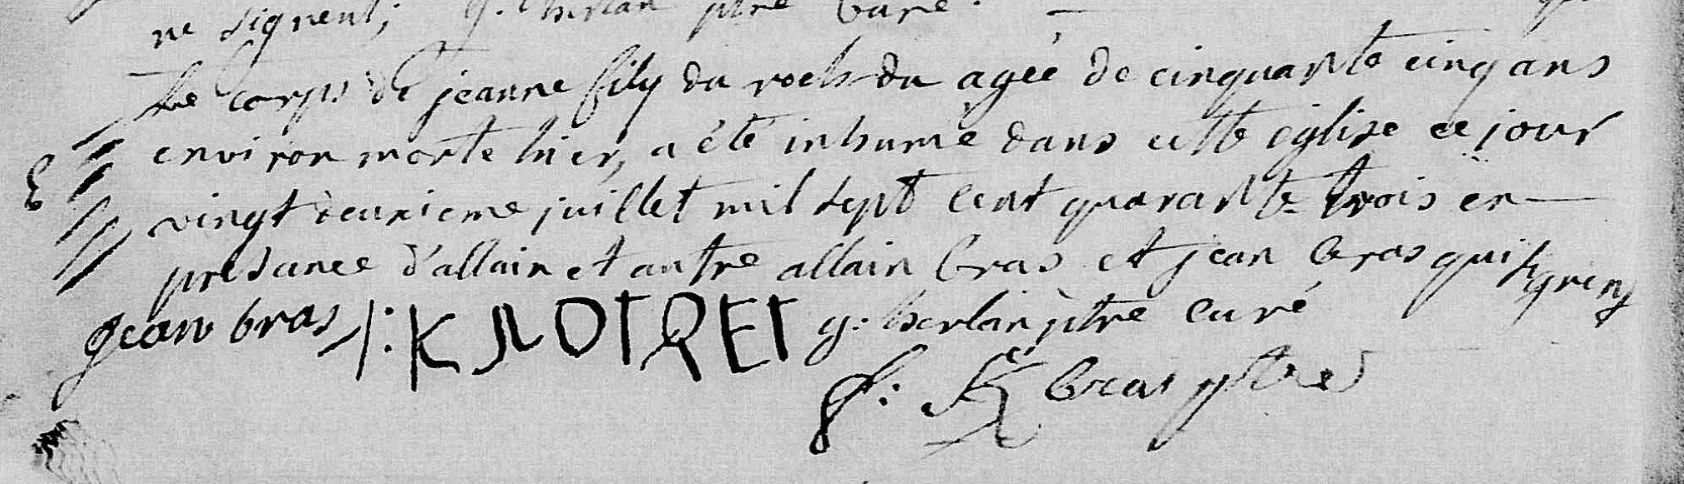 ne signent; g. herlan ptre curé.
Le corps de jeanne fily du roch du agée de cinquante cinq ans
environ morte hier, a été inhumé dans cette église ce jour
vingt deuxieme juillet mil sept cent quarante trois en
presance d'allain et autre allain bras et jean bras qui signent
jean bras /: K g: herlan ptre curé
f: bras ptre